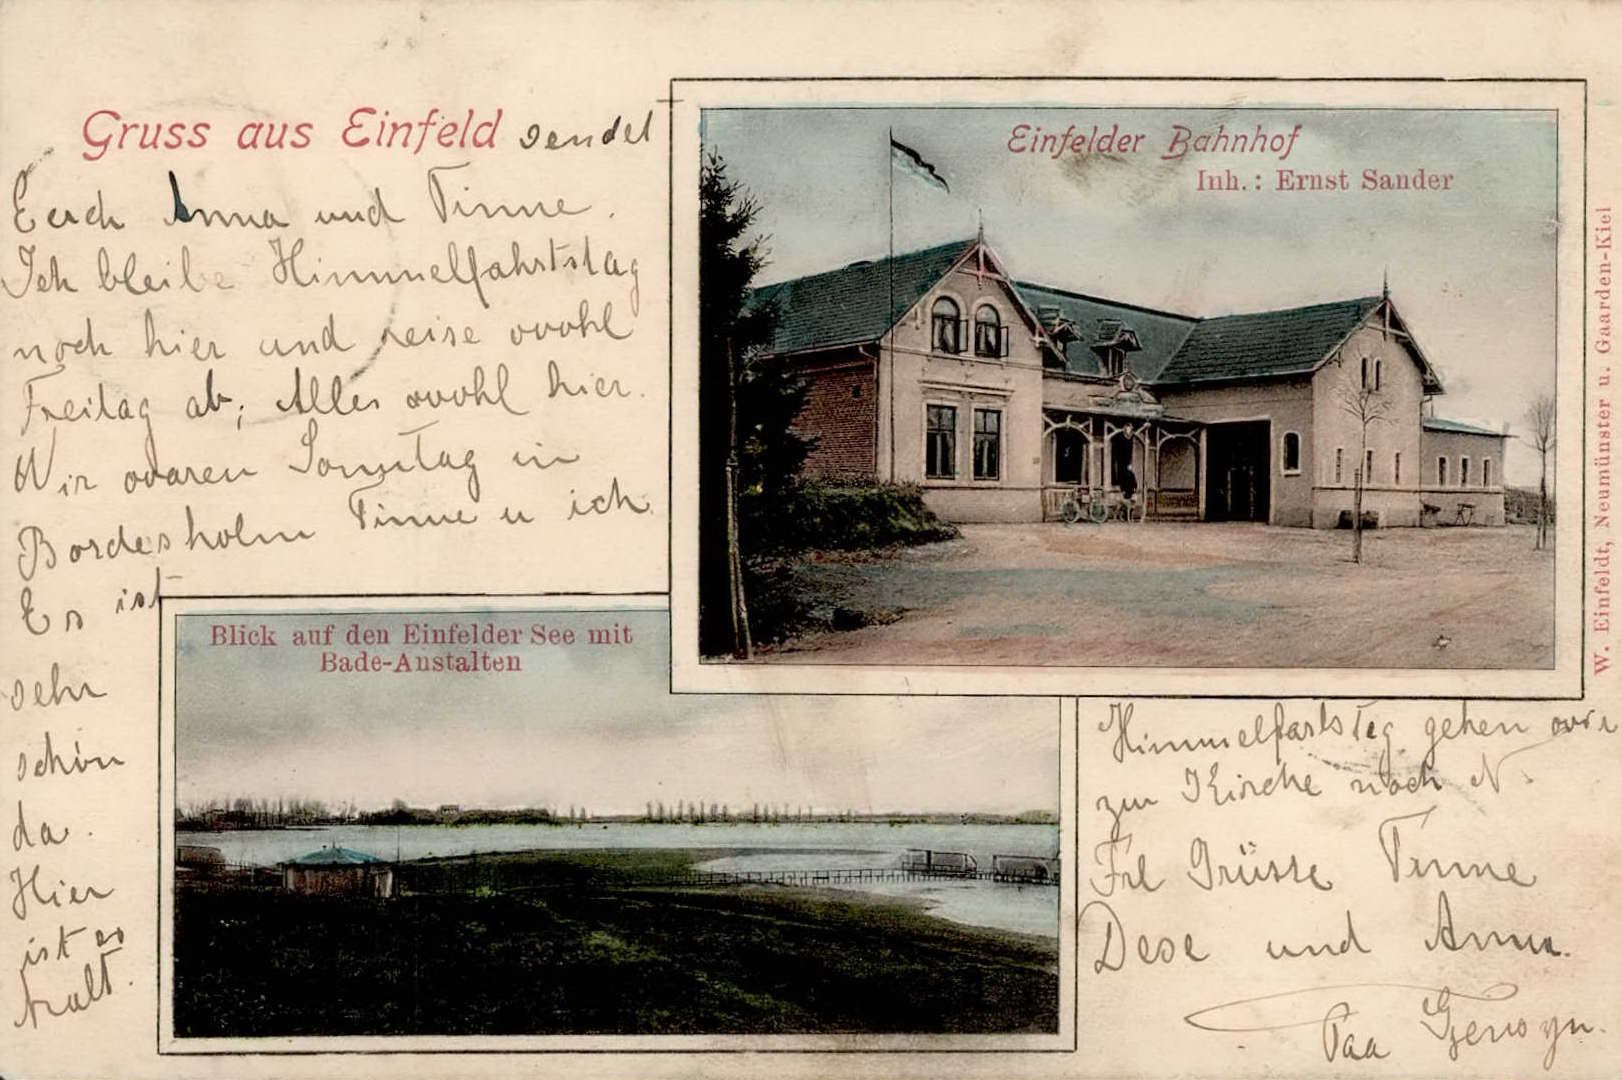 Gruss aus Einfeld sendet
Euch Anna und Tinne.
Ich bleibe Himmelfahrtstag
noch hier und reise wohl
Freitag ab; Alles wohl hier.
Wir waren Sonntag in
Bordesholm Tinne u ich.
Es ist
sehr
schön
da.
Hier
ist es
kalt.
Einfelder Bahnhof
Inh.: Ernst Sander
W. Einfeldt, Neumünster u. Gaarden-Kiel
Blick auf den Einfelder See mit
Bade-Anstalten
Himmelfartstag gehen wir
zur Kirche nach N.
Frl Grüsse Tinne
Dese und Anna.